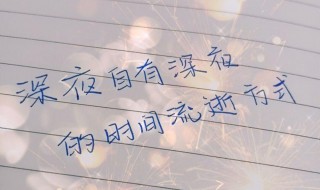 深夜自有深夜
的时间流逝方式